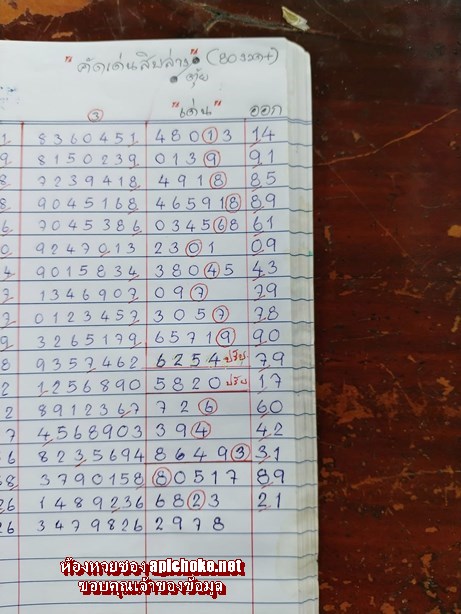 "คัดเด่นสิบล่าง" (80งวด+)
• ตุ้ย
③ "เด่น" ออก
1 8360451 48013 14
9 8150239 0139 91
8 7239418 4918 85
8 9045168 465918 89
6 7045386 034568 61
0 9247013 2301 09
4 9015834 38045 43
7 1346907 097 79
7 0123457 3057 78
9 3265179 65719 90
8 9357462 6254 ปรับ 79
2 1256890 5820 ปรับ 17
2 8912367 726 60
7 4568903 394 42
6 8235694 86493 31
58 3790158 80517 89
26 1489236 6823 21
26 3479826 2978
ห้องหวยซอง apichoke.net
ขอบคุณเจ้าของข้อมูล